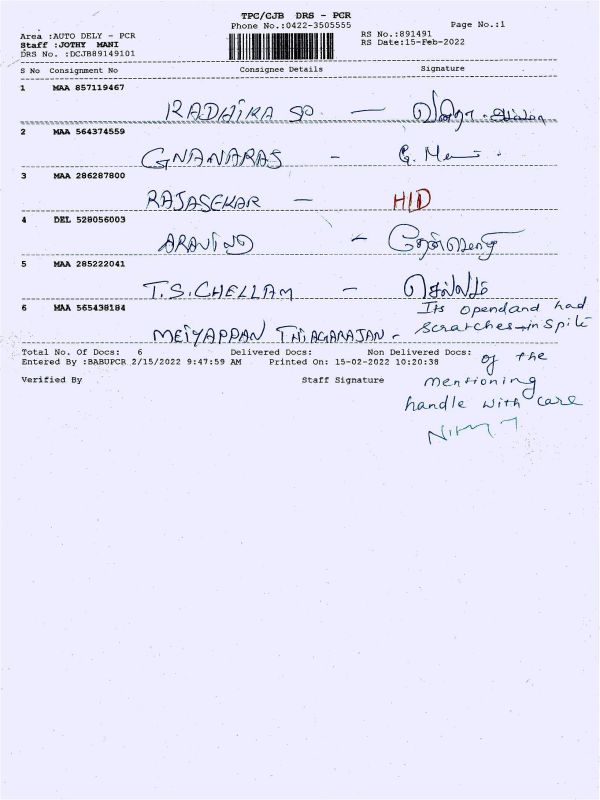 TPC/CJB DRS - PCR
Phone No.:0422-3505555 Page No.:1
Area :AUTO DELY - PCR RS No.:891491
Staff :JOTHY MANI RS Date:15-Feb-2022
DRS No. :DCJB89149101
S No Consignment No Consignee Details Signature
1 MAA 857119467
RADHIKA SP -
2 MAA 564374559
GNANARAS -
3 MAA 286287800
RAJASEKAR - HID
4 DEL 528056003
ARAVIND -
5 MAA 285222041
T.S.CHELLAM - செல்லம்
6 MAA 565438184
MEIYAPPAN THIAGARAJAN -
Its opend and had
scratches in spite
Total No. Of Docs: 6 Delivered Docs: Non Delivered Docs:
of the
Entered By :BABUPCR 2/15/2022 9:47:59 AM Printed On: 15-02-2022 10:20:38
Verified By Staff Signature
mentioning
handle with care